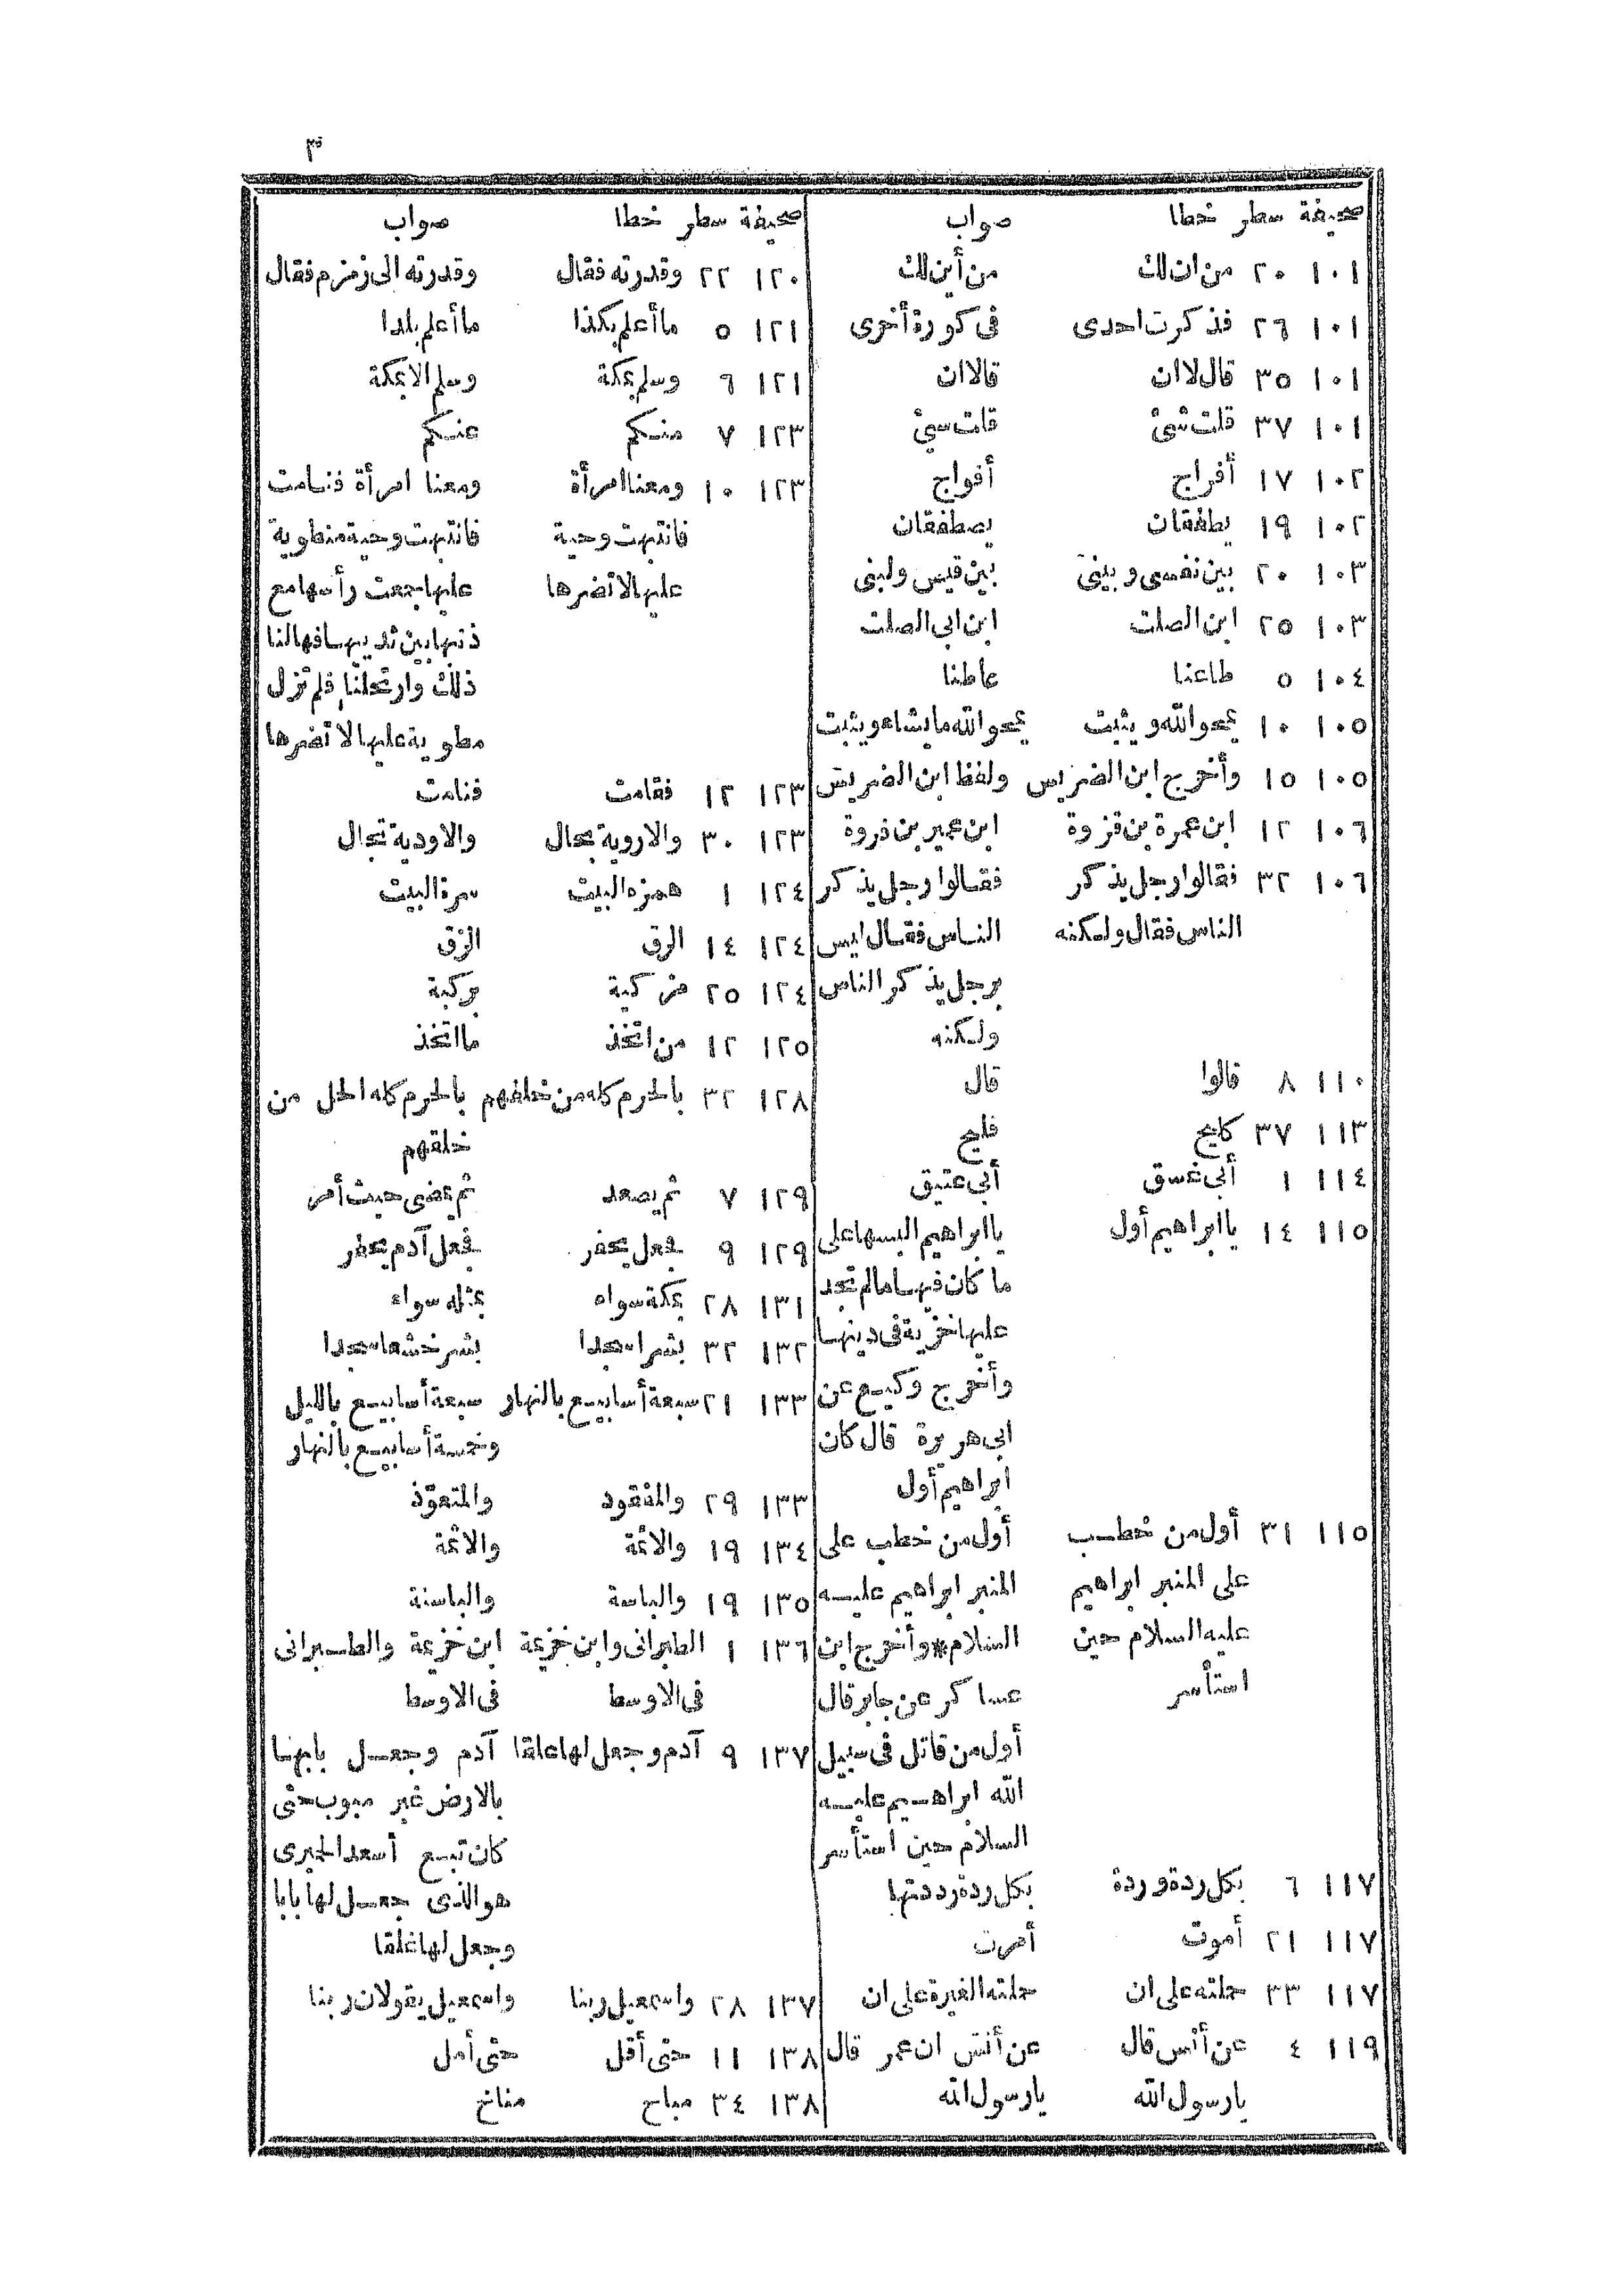 ٣
صحيفة سطر خطا صواب
١٠١ ٢٠ من ان لك من أين لك
١٠١ ٢٦ فذكرت احدى فى كورة أخرى
١٠١ ٣٥ قال لا ان قالا ان
١٠١ ٣٧ قلت شئ قلت سئ
١٠٢ ١٧ أفراج أفواج
١٠٢ ١٩ يطفقان يصطفقان
١٠٣ ٢٠ بين نفسى وبينى بين قيس ولبنى
١٠٣ ٢٥ ابن الصلت ابن ابى الصلت
١٠٤ ٥ طاعنا عاطنا
١٠٥ ١٠ يمحو الله ويثبت يمحو الله ما يشاء ويثبت
١٠٥ ١٥ وأخرج ابن الضريس ولفظ ابن الضريس
١٠٦ ١٢ ابن عمرة بن قزوة ابن عمير بن ذروة
١٠٦ ٣٢ فقالوا رجل يذكر فقالوا رجل يذكر
الناس فقال ولكنه الناس فقال ليس
برجل يذكر الناس
ولكنه
١١٠ ٨ قالوا قال
١١٣ ٣٧ كليح فليح
١١٤ ١ أبى غسق أبى عتيق
١١٥ ١٤ يا ابراهيم أول يا ابراهيم البسها على
ما كان فيها ما لم تجد
عليها خزية فى دينها
وأخرج وكيع عن
ابى هريرة قال كان
ابراهيم أول
١١٥ ٣١ أول من خطب أول من خطب على
على المنبر ابراهيم المنبر ابراهيم عليه
عليه السلام حين السلام * وأخرج ابن
استأسر عساكر عن جابر قال
أول من قاتل فى سبيل
الله ابراهيم عليه
السلام حين استأسر
١١٧ ٦ بكل ردة وردة بكل ردة رددتها
١١٧ ٢١ أموت أمرت
١١٧ ٣٣ حملته على ان حملته الغيرة على ان
١١٩ ٤ عن أنس قال عن أنس ان عمر قال
يا رسول الله يا رسول الله
صحيفة سطر خطا صواب
١٢٠ ٢٢ وقدرته فقال وقدرته الى زمزم فقال
١٢١ ٥ ما أعلم بكذا ما أعلم بلدا
١٢١ ٦ وسلم بمكة وسلم الا بمكة
١٢٣ ٧ منكم عنكم
١٢٣ ١٠ ومعنا امرأة ومعنا امرأة فنامت
فانتبهت وحية فانتبهت وحية منطوية
عليها لا تضرها عليها جمعت رأسها مع
ذنبها بين ثدييها فهالنا
ذلك وارتحلنا فلم تزل
مطوية عليها لا تضرها
١٢٣ ١٢ فقامت فنامت
١٢٣ ٣٠ والاروية بجال والاودية تجال
١٢٤ ١ همزه البيت سرة البيت
١٢٤ ١٤ الرق الزق
١٢٤ ٢٥ من كبة بركبة
١٢٥ ١٢ من اتخذ ما اتخذ
١٢٨ ٣٢ بالحرم كله من خلفهم بالحرم كله الحل من
خلفهم
١٢٩ ٧ ثم يصعد ثم يمضى حيث أمر
١٢٩ ٩ فجعل يحفر فجعل آدم يحفر
١٣١ ٢٨ بمكة سواه بمثله سواء
١٣٢ ٣٢ بشرا سجدا بشر خشعا سجدا
١٣٣ ٢١ سبعة أسابيع بالنهار سبعة أسابيع بالليل
وخمسة أسابيع بالنهار
١٣٣ ٢٩ والمفقود والمتعوّذ
١٣٤ ١٩ والائمة والائمة
١٣٥ ١٩ والباسة والباسنة
١٣٦ ١ الطبرانى وابن خزيمة ابن خزيمة والطبرانى
فى الاوسط فى الاوسط
١٣٧ ٩ آدم وجعل لها غلقا آدم وجعل بابها
بالارض غير مبوب حتى
كان تبع أسعد الحميرى
هو الذى جعل لها بابا
وجعل لها غلقا
١٣٧ ٢٨ واسمعيل ربنا واسمعيل يقولان ربنا
١٣٨ ١١ حتى أقل حتى أمل
١٣٨ ٣٤ مباح مفاتح